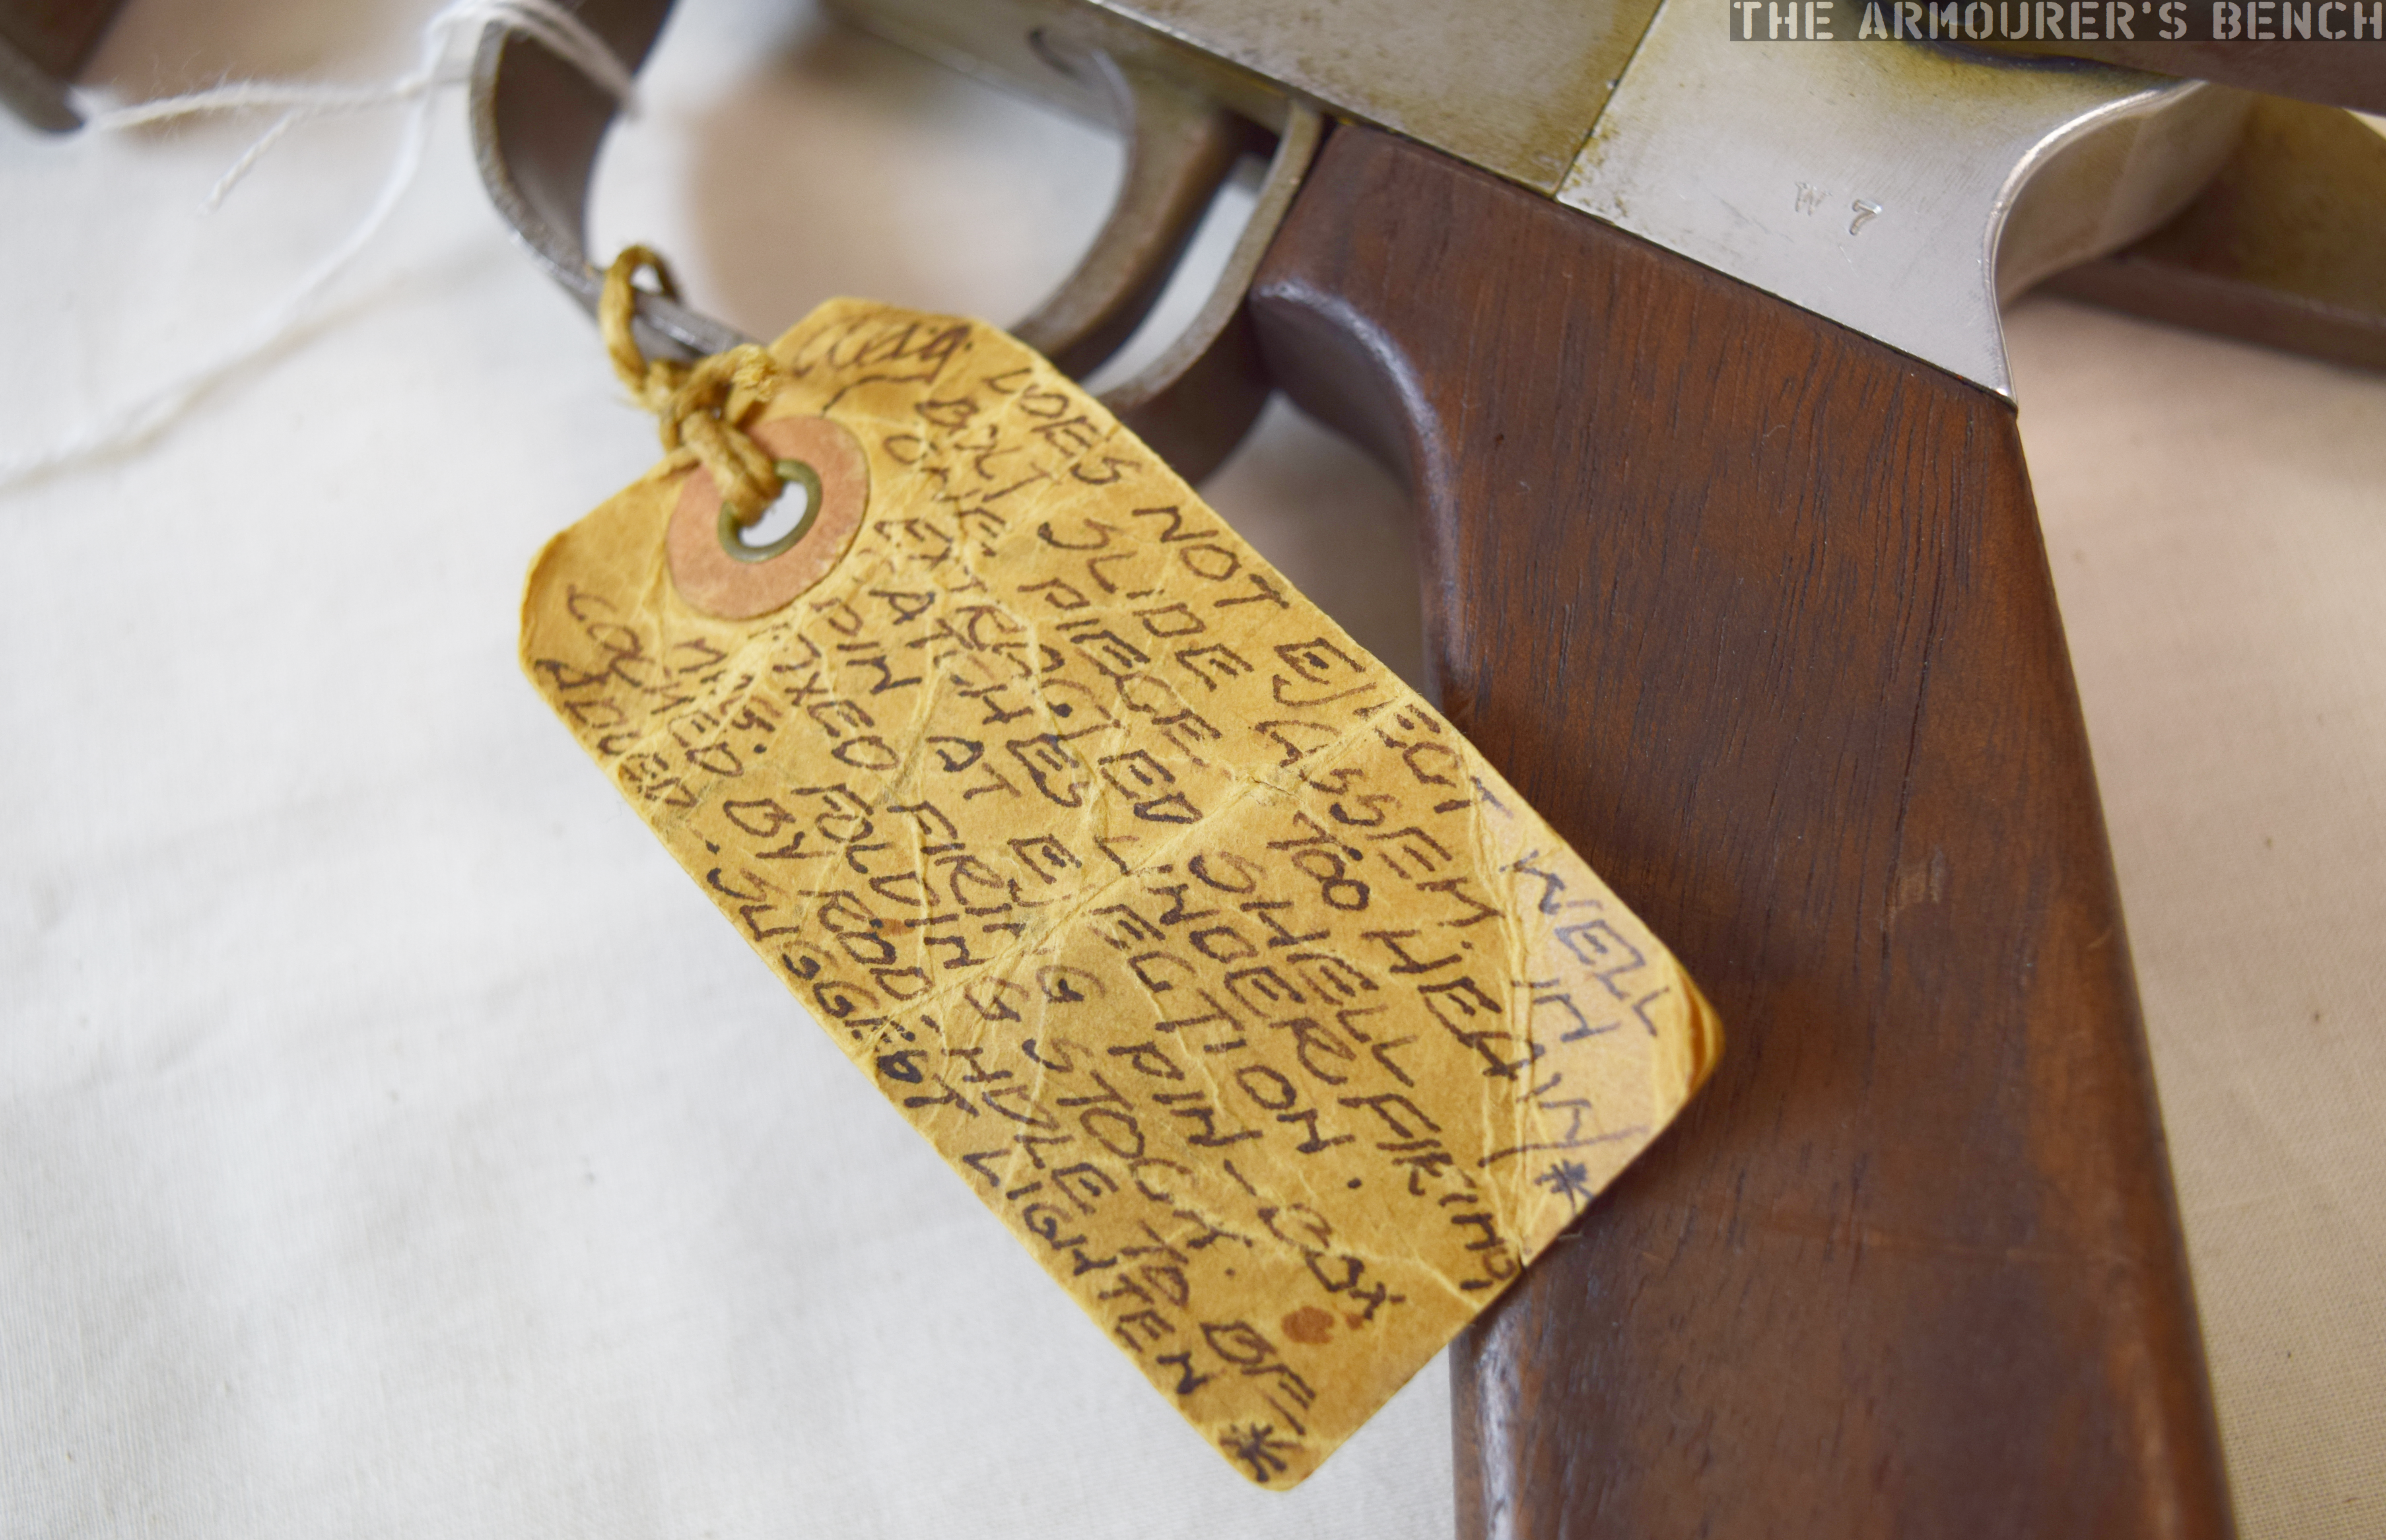 THE ARMOURER'S BENCH
W 7
DOES NOT EJECT WELL
BOLT SLIDE ASSEM. IN
ONE PIECE TOO HEAVY *
SHELL
CATCHES UNDER FIRING
PIN AT EJECTION.
FIXED FIRING PIN - BOX
MAG. FOLDING STOCK.
COCKED BY ROD, HDLE TO BE
ADDED. SUGGEST LIGHTEN *